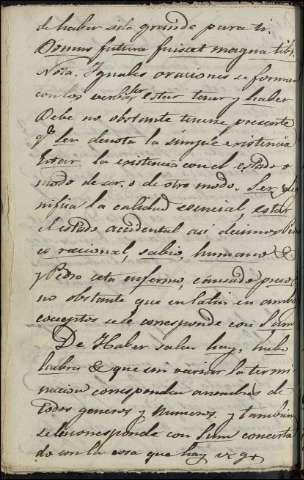 de haber sido grande para ti.
Domus futura fuisset magna tibi
Nota. Iguales oraciones se forman
con los verbos estar tener y haber
Debe no obstante tenerse presente
qe Ser denota la simple existencia
Estar la existencia con el estado o
modo de ser, o de otro modo. Ser
la calidad esencial, estar
el estado accidental asi decimos
es racional, sabio, humano &
y Pedro esta enfermo, cansado preso
no obstante que en latin en ambos
conceptos se le corresponde con Sum
De Haber salen hay, hubo
habra & que sin variar la termi
nacion corresponden a
todos generos y numeros, y tambien
se le corresponde con Sum concerta
do con la cosa que hay v. g.